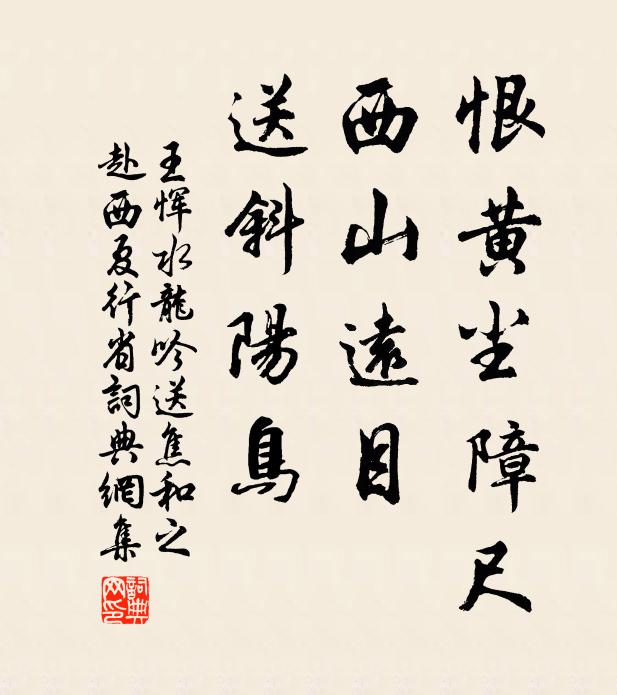 恨黄尘障尺
西山遠目
送斜陽鳥
王惲水龍吟送焦和之
赴西夏行省詞典網集
詞典網印